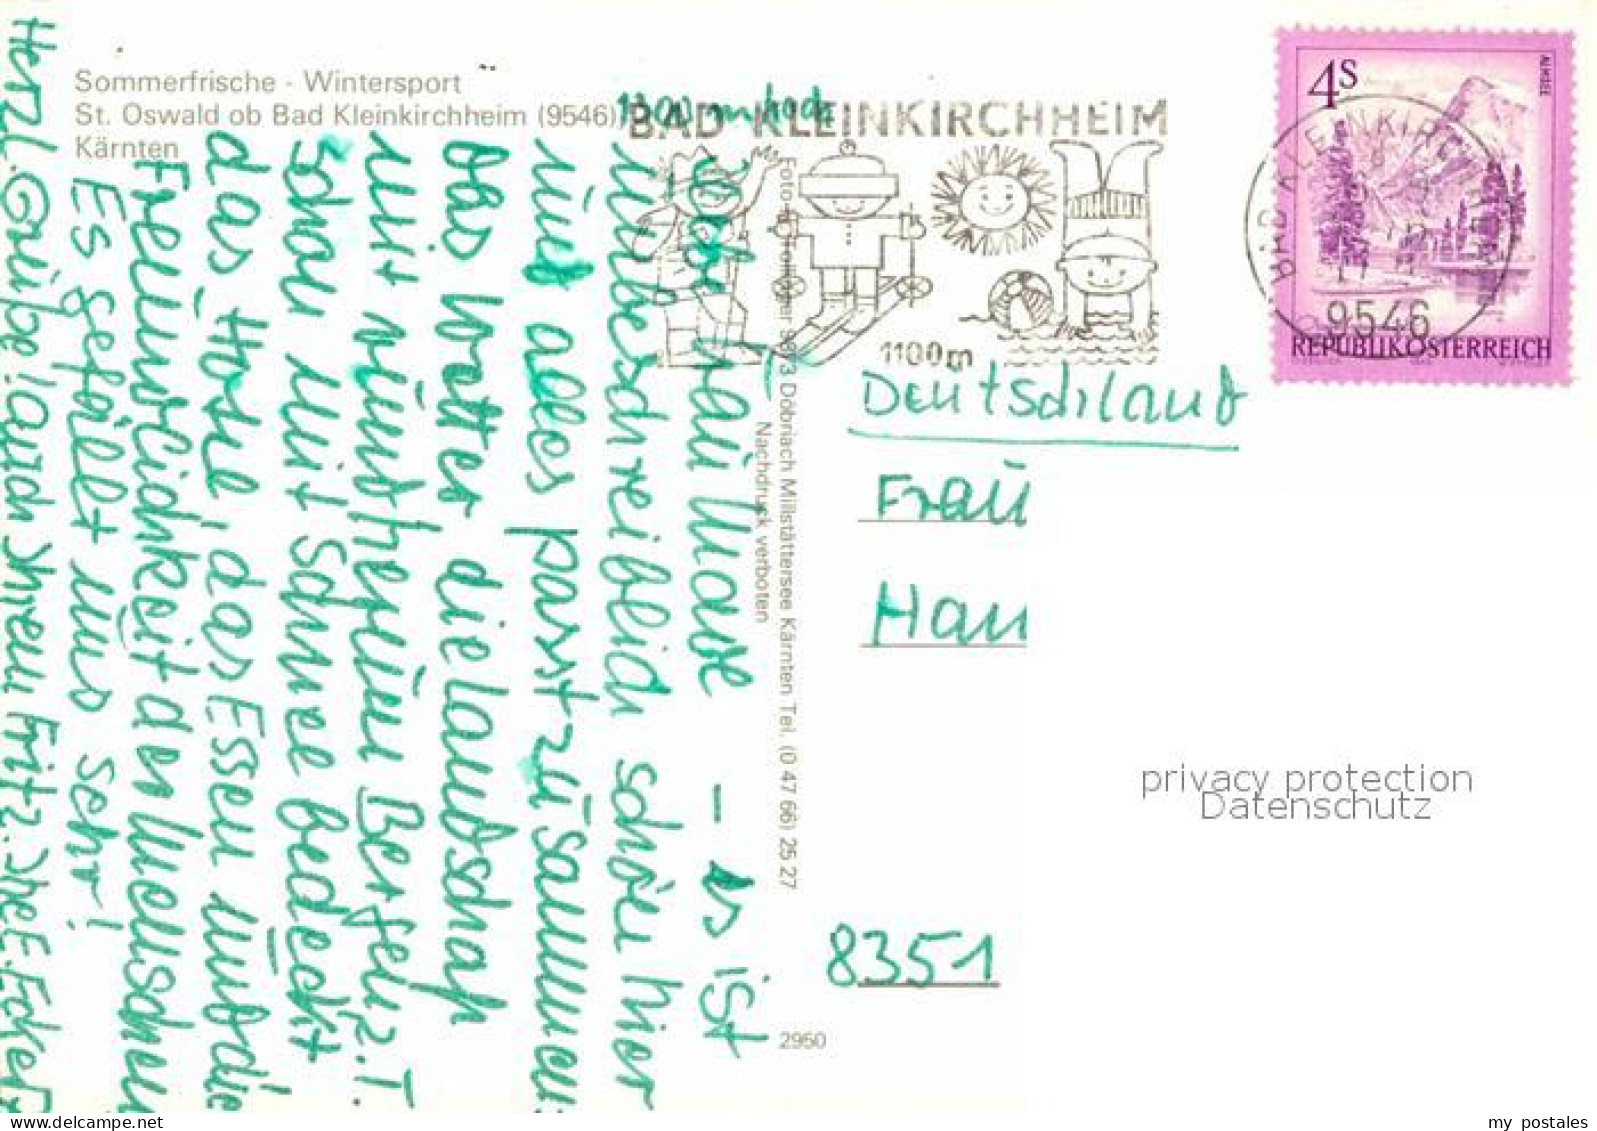 Sommerfrische - Wintersport
St. Oswald ob Bad Kleinkirchheim (9546)
Kärnten
1300 m hoch
BAD KLEINKIRCHHEIM
1100m
4S
ALMSEE
REPUBLIK ÖSTERREICH
BAD KLEINKIRCHHEIM
9546
Liebe Frau Haue – es ist
unbeschreiblich schön hier
und alles passt zusammen:
Das Wetter die Landschaft
mit wundherrlichen Bergen z. T.
schon mit Schnee bedeckt
das Hotel, das Essen und die
Freundlichkeit der Menschen
Es gefällt uns sehr!
Herzl. Grüße! auch Ihrem Fritz. Ihre E. Ecker
Nachdruck verboten
Döbriach Millstättersee Kärnten Tel. (0 47 66) 25 27
Deutschland
Frau
Hau
8351
2950
privacy protection
Datenschutz
my postales